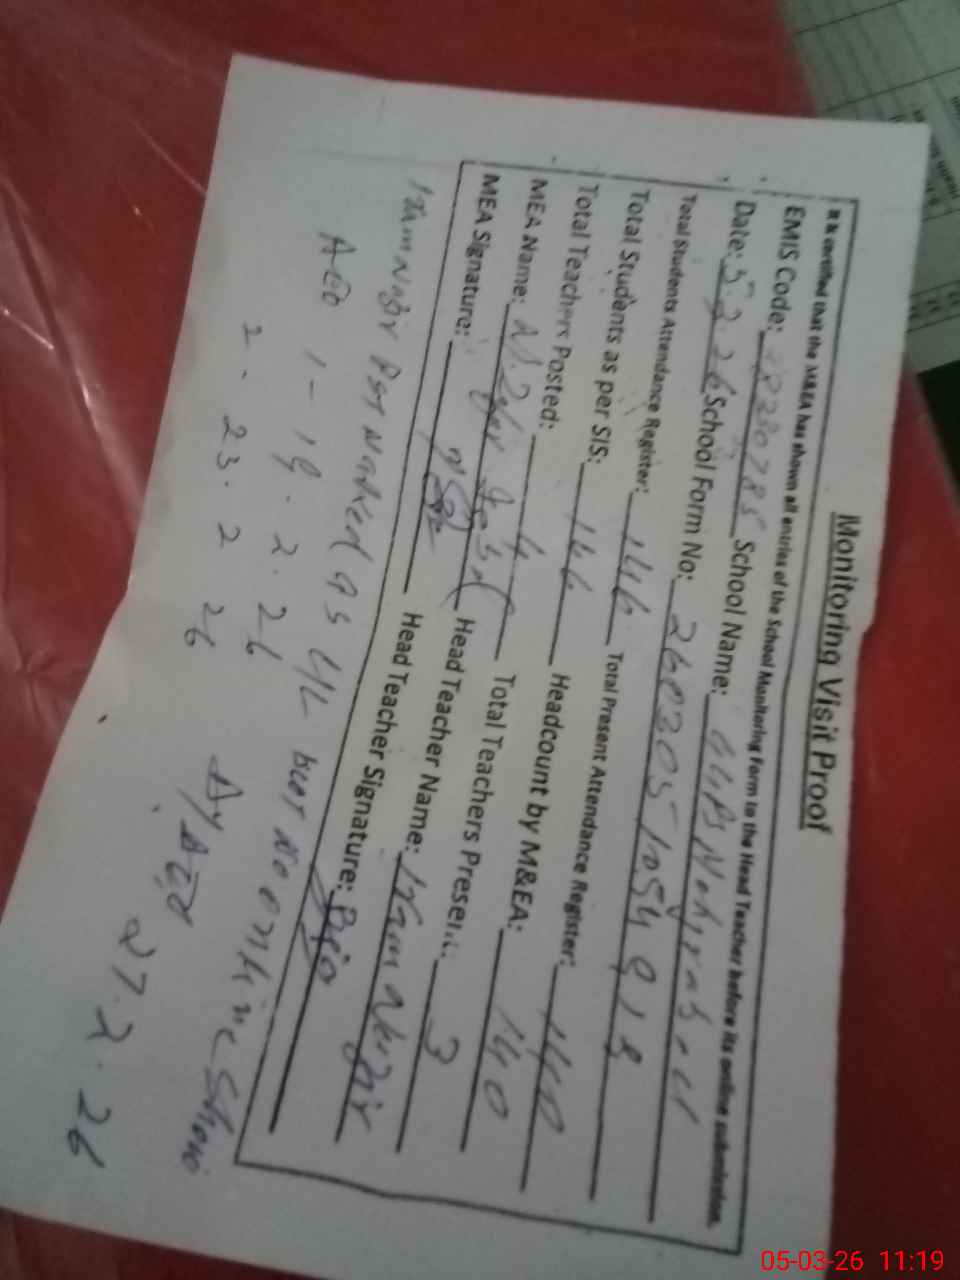 Monitoring Visit Proof
It is certified that the M&EA has shown all entries of the School Monitoring Form to the Head Teacher before its online submission.
EMIS Code: School Name:
Date: 5.3.26 School Form No: 2603051054918
Total Students Attendance Register: 146 Total Present Attendance Register: 140
Total Students as per SIS: 146 Headcount by M&EA: 140
Total Teachers Posted: 4 Total Teachers Present: 3
MEA Name: Head Teacher Name: Irum Nazir
MEA Signature: Head Teacher Signature:
Irum Nazir PST Marked as U/L but no online show
AEO 1- 19.2.26
2. 23.2 26
27.2.26
05-03-26 11:19